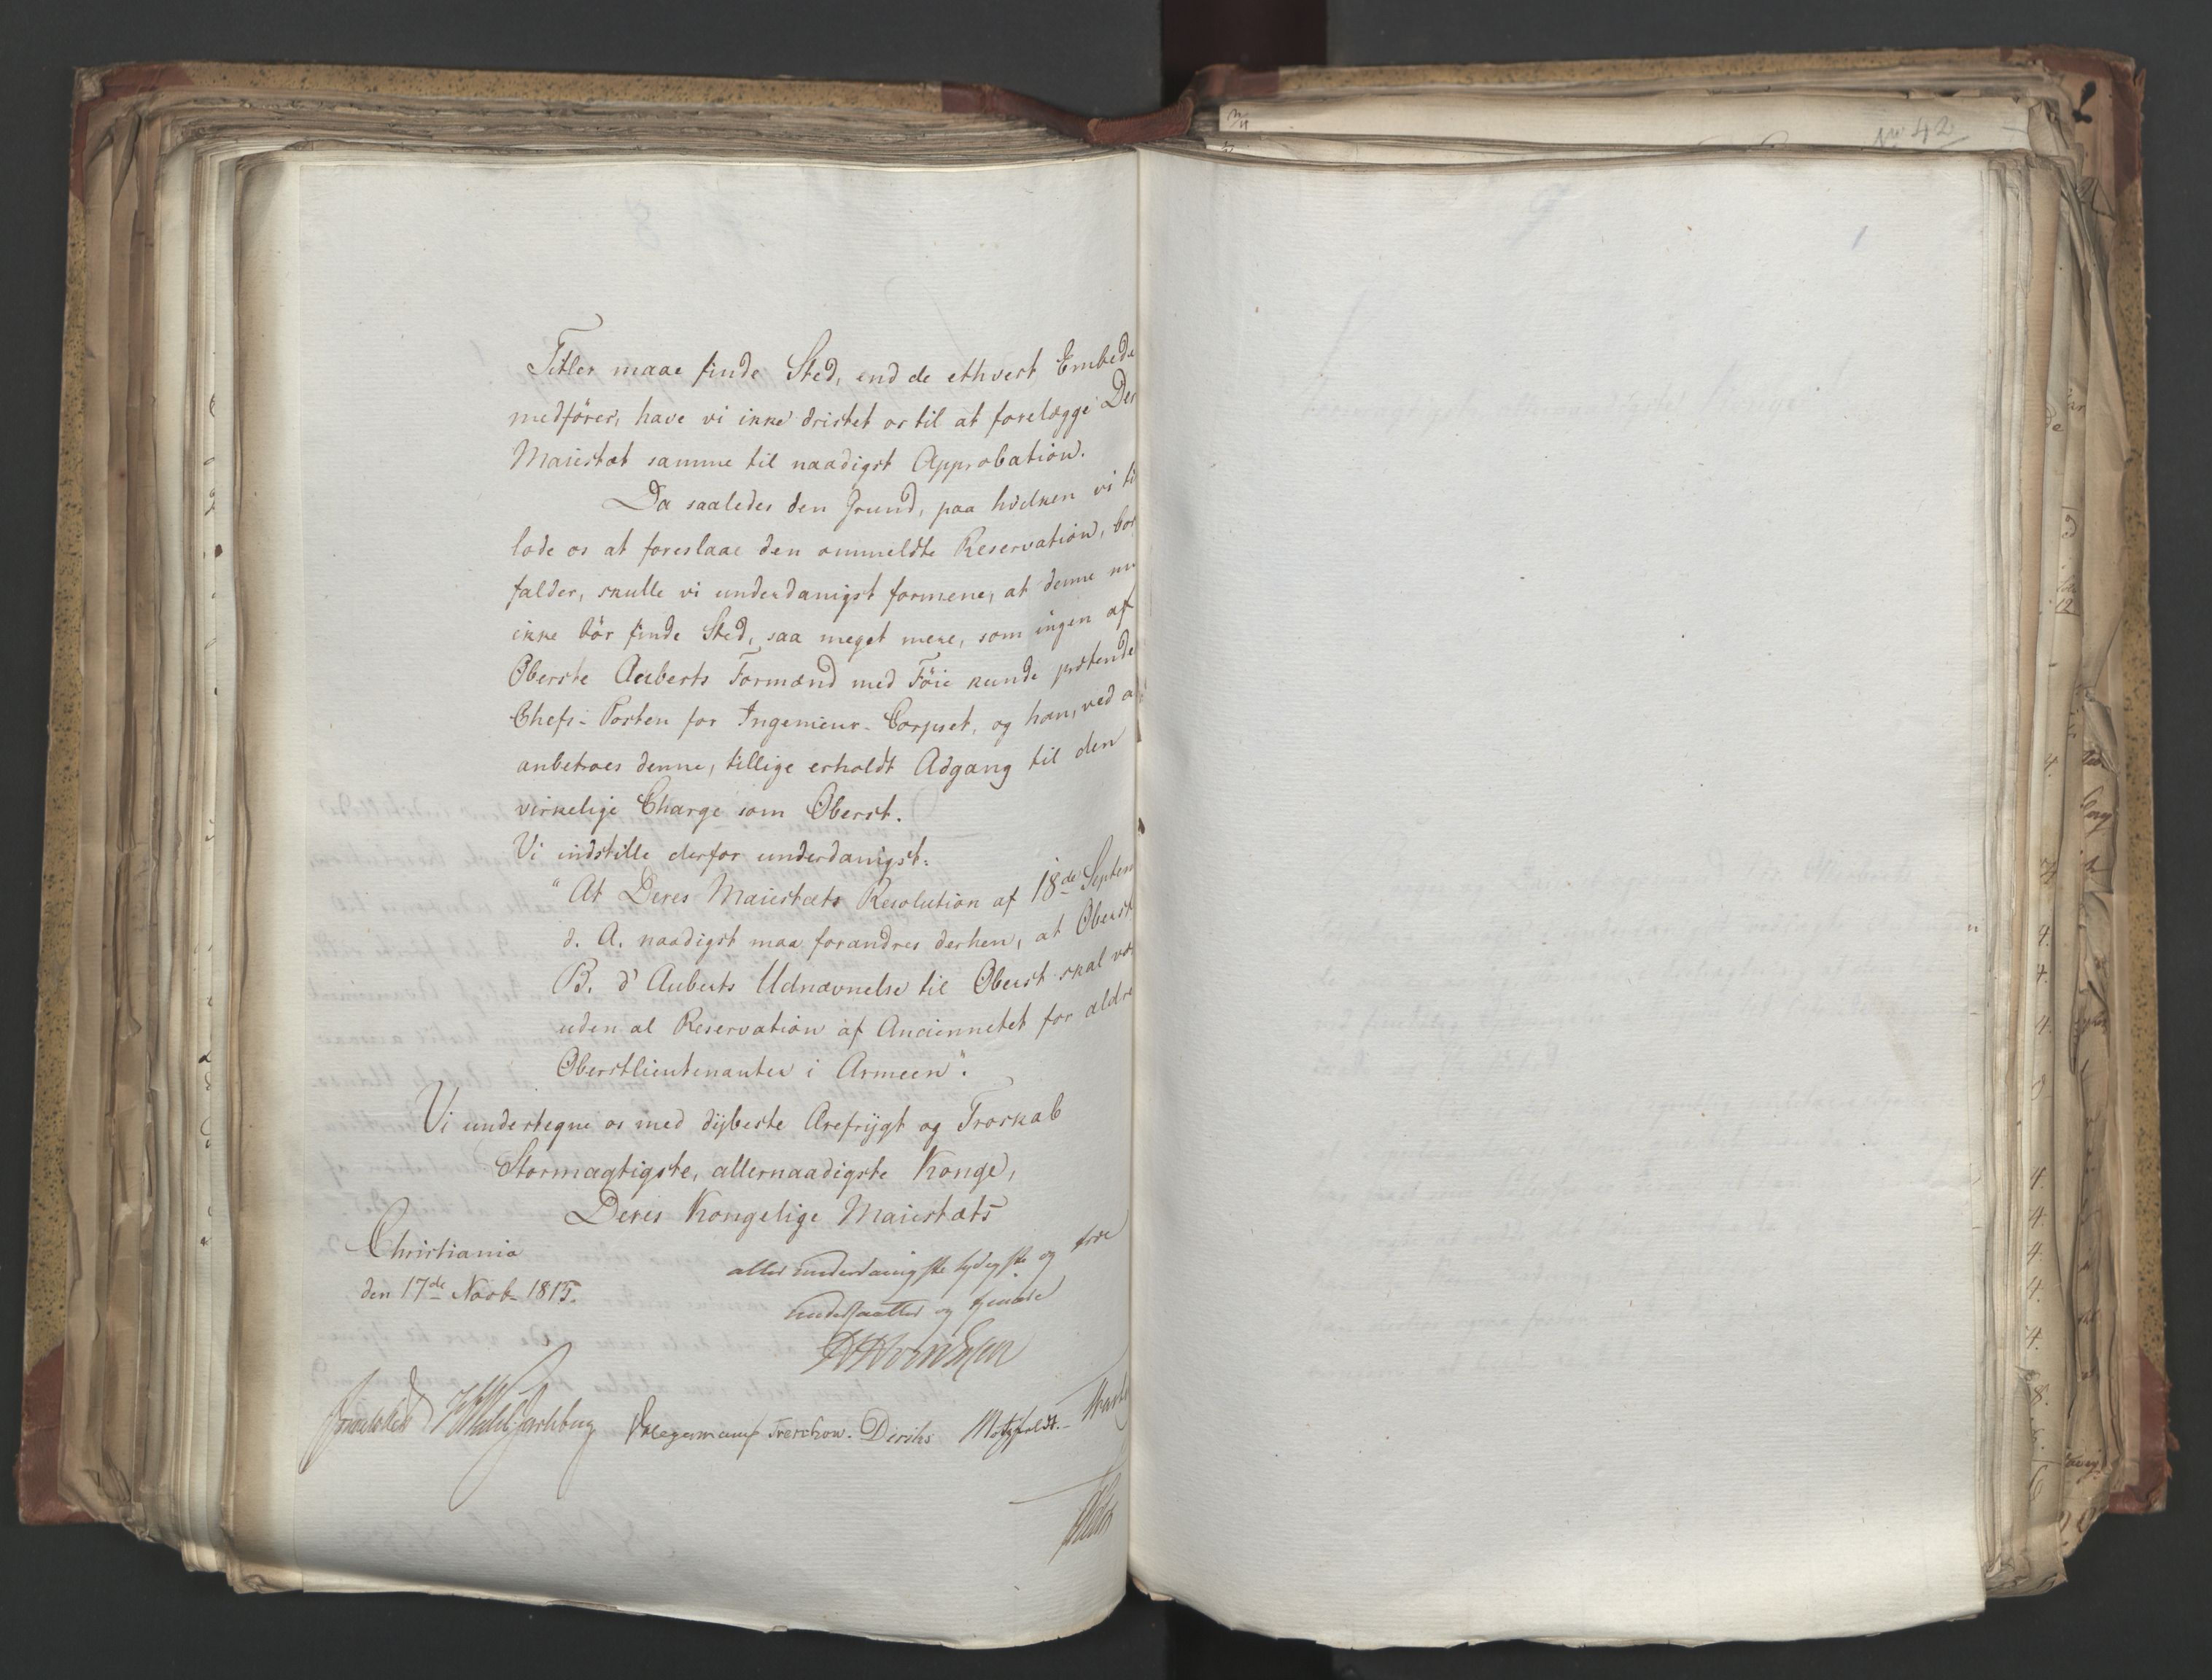 No 42
Titler maae finde Sted, end de ethvert Embede
medfører, have vi ikke dristet os til at forelægge Der
Maiestæt samme til naadigst Approbation.
Da saaledes den Grund, paa hvilken vi til
lode os at foreslaae den ommeldte Reservation, bor
falder, skulle vi underdanigst formene, at denne nu
ikke bör finde Sted, saa meget mere, som ingen af
Oberste Auberts Formænd med Föie kunde prætende
Chefs-Posten for Ingenieur-Corpset, og han, ved a
anbetroes denne, tillige erholdt Adgang til den
virkelige Charge som Oberst.
Vi indstille derfor underdanigst:
"At Deres Maiestæts Resolution af 18de Septem
d. A. naadigst maa forandres derhen, at Oberst
B. d'Auberts Udnævnelse til Oberst skal væ
uden al Reservation af Anciennetet for ældre
Oberstlieutenanter i Armeen".
Vi undertegne os med dÿbeste Ærefrÿgt og Troskab
Stormægtigste, allernaadigste Konge,
Deres Kongelige Maiestæts
Christiania
den 17de Novb. 1815.
allerunderdanigste lydigste og troe
undersaatter og tjenere
Wedel Jarlsberg Treschow. Diriks Motzfeldt.